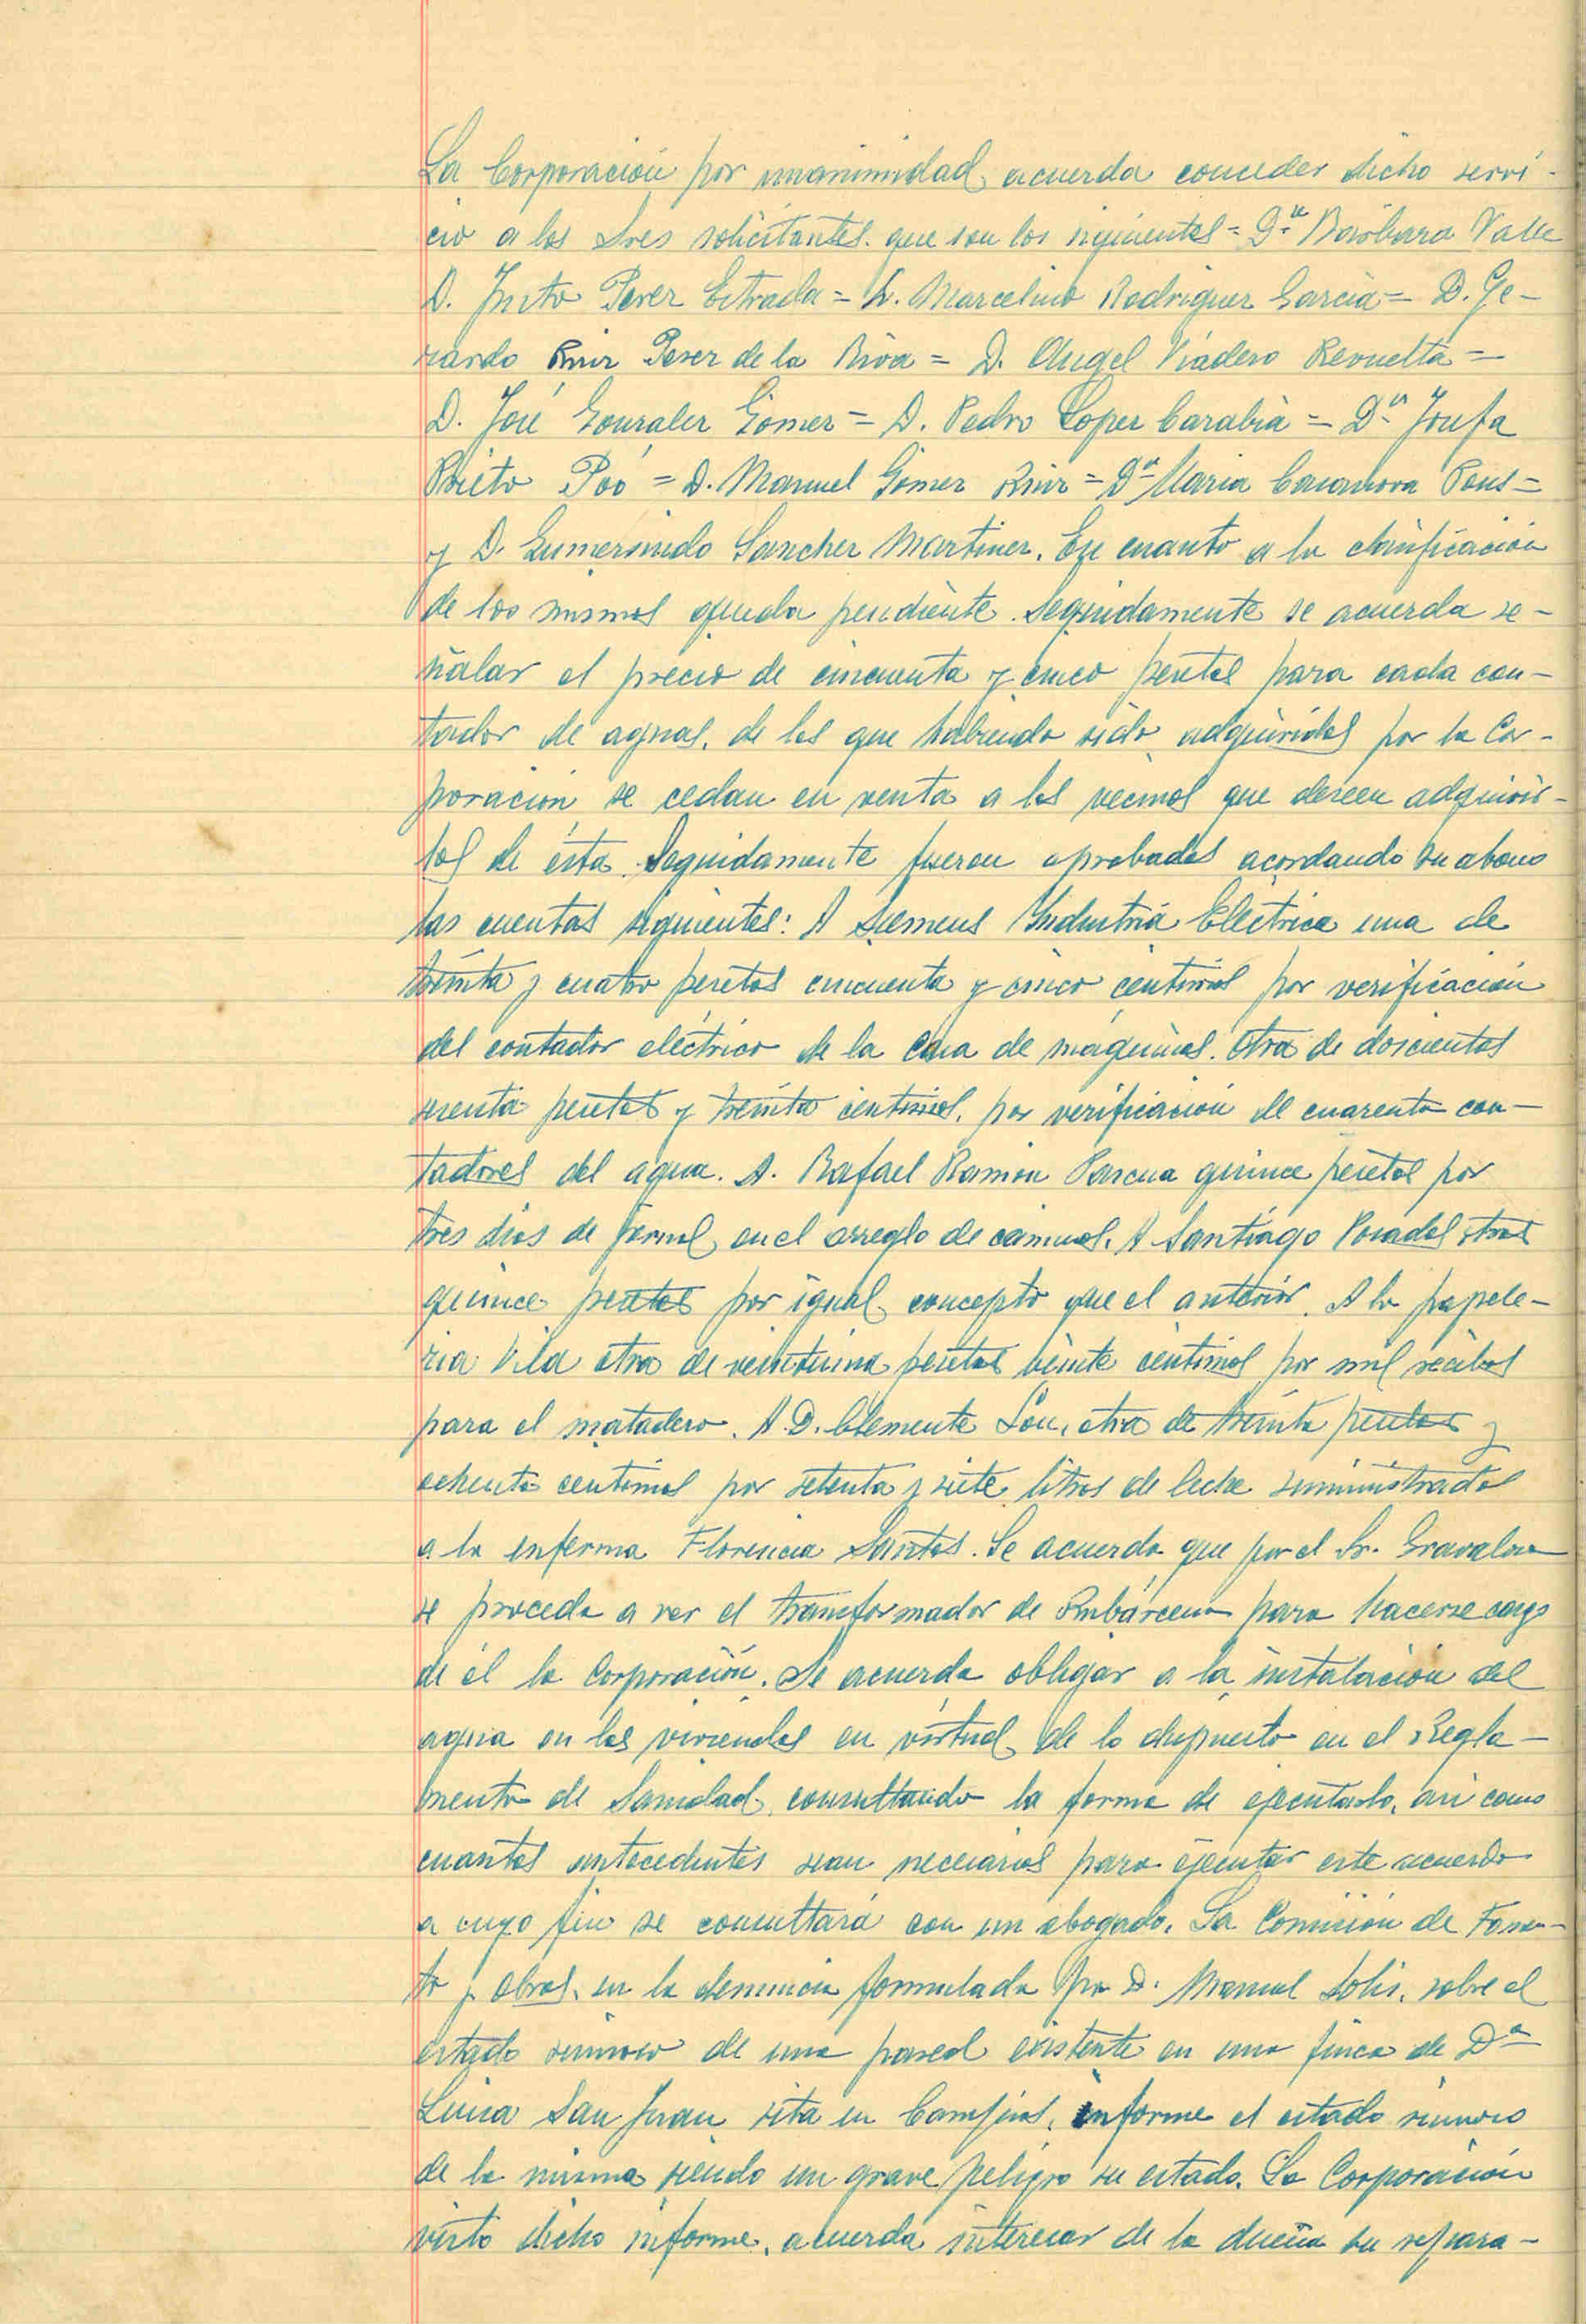 La Corporación por unanimidad, acuerda conceder dicho servi-
cio a los Sres solicitantes. que son los siguientes = Dª Bárbara Valle
D. Justo Perez Estrada = D. Marcelino Rodriguez Garcia = D. Ge-
rardo Ruiz Perez de la Riva = D. Angel Viadero Revuelta =
D. José Gonzalez Gómez = D. Pedro Lopez Carabia = Dª Josefa
Prieto Poó = D. Manuel Gómez Ruiz = Dª Maria Casanova Pons =
y D. Gumersindo Sanchez Martinez. En cuanto a la clasificación
de los mismos queda pendiente. Seguidamente se acuerda se-
ñalar el precio de cincuenta y cinco pesetas para cada con-
tador de aguas, de los que habiendo sido adquiridos por la Cor-
poración se cedan en venta a los vecinos que deseen adquirir-
los de ésta. Seguidamente fueron aprobadas acordando su abono
las cuentas siguientes: A Siemens Industria Eléctrica una de
treinta y cuatro pesetas cincuenta y cinco centimos por verificación
del contador eléctrico de la casa de máquinas. Otra de doscientas
senta pesetas y treinta centimos, por verificación de cuarenta con-
tadores del agua. A. Rafael Ramón Pascua quince pesetas por
tres dias de jornal, en el arreglo de caminos. A Santiago Posadas otras
quince pesetas por igual concepto que el anterior. A la papele-
ria Vila otra de veintiuna pesetas veinte centimos por mil recibos
para el matadero. A. D. Clemente otra de treinta pesetas y
ochenta centimos por setenta y siete litros de leche suministrados
a la enferma Florencia Santos. Se acuerda que por el Sr. Gravalosa
se proceda a ver el transformador de Rubárcena para hacerse cargo
de él la Corporación. Se acuerda obligar a la instalación del
agua en las viviendas en virtud de lo dispuesto en el Regla-
mento de Sanidad, consultando la forma de ejecutarlo, asi como
cuantos antecedentes sean necesarios para ejecutar este acuerdo
a cuyo fin se consultará con un abogado. La Comisión de Fomen-
to y Obras, en la denuncia formulada por D. Manuel Solis, sobre el
estado ruinoso de una pared existente en una finca de Dª
Luisa San Juan sita en Campios, informe el estado ruinoso
de la misma siendo un grave peligro su estado. La Corporación
visto dicho informe, acuerda interesar de la dueña su repara-